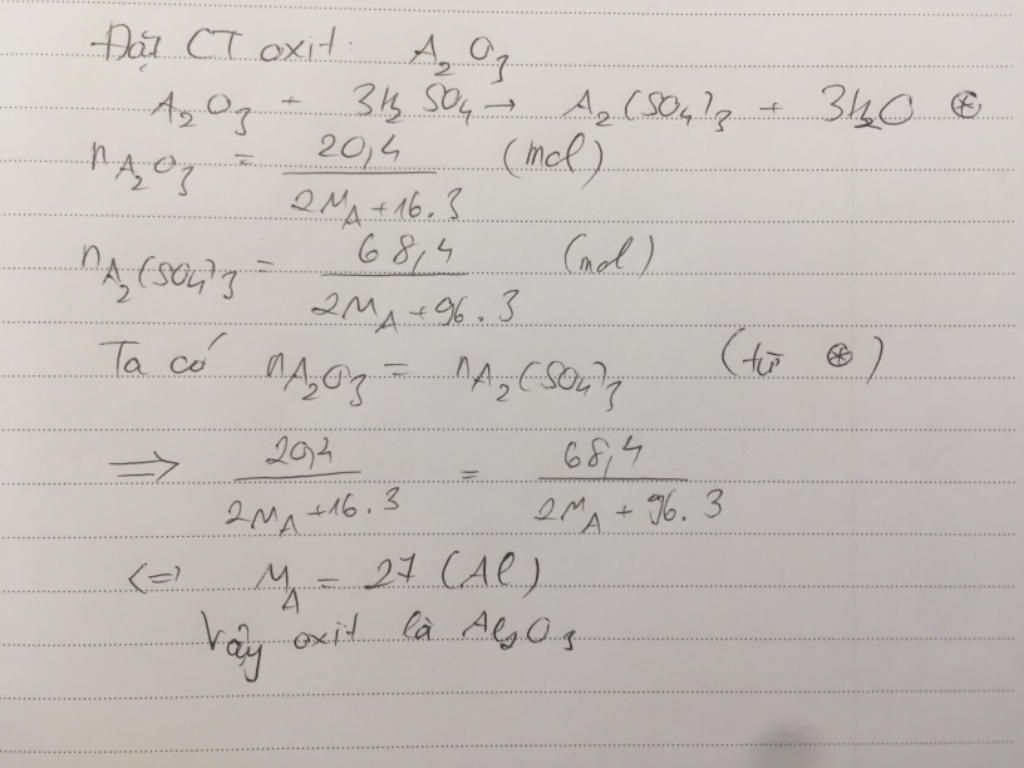 Đặt CT oxit: A₂O₃
A₂O₃ + 3H₂SO₄ → A₂(SO₄)₃ + 3H₂O ⊛
nA₂O₃ = 20,4 / (2M_A + 16.3) (mol)
nA₂(SO₄)₃ = 68,4 / (2M_A + 96.3) (mol)
Ta có nA₂O₃ = nA₂(SO₄)₃ (từ ⊛)
⇒ 20,4 / (2M_A + 16.3) = 68,4 / (2M_A + 96.3)
<=> M_A = 27 (Al)
Vậy oxit là Al₂O₃